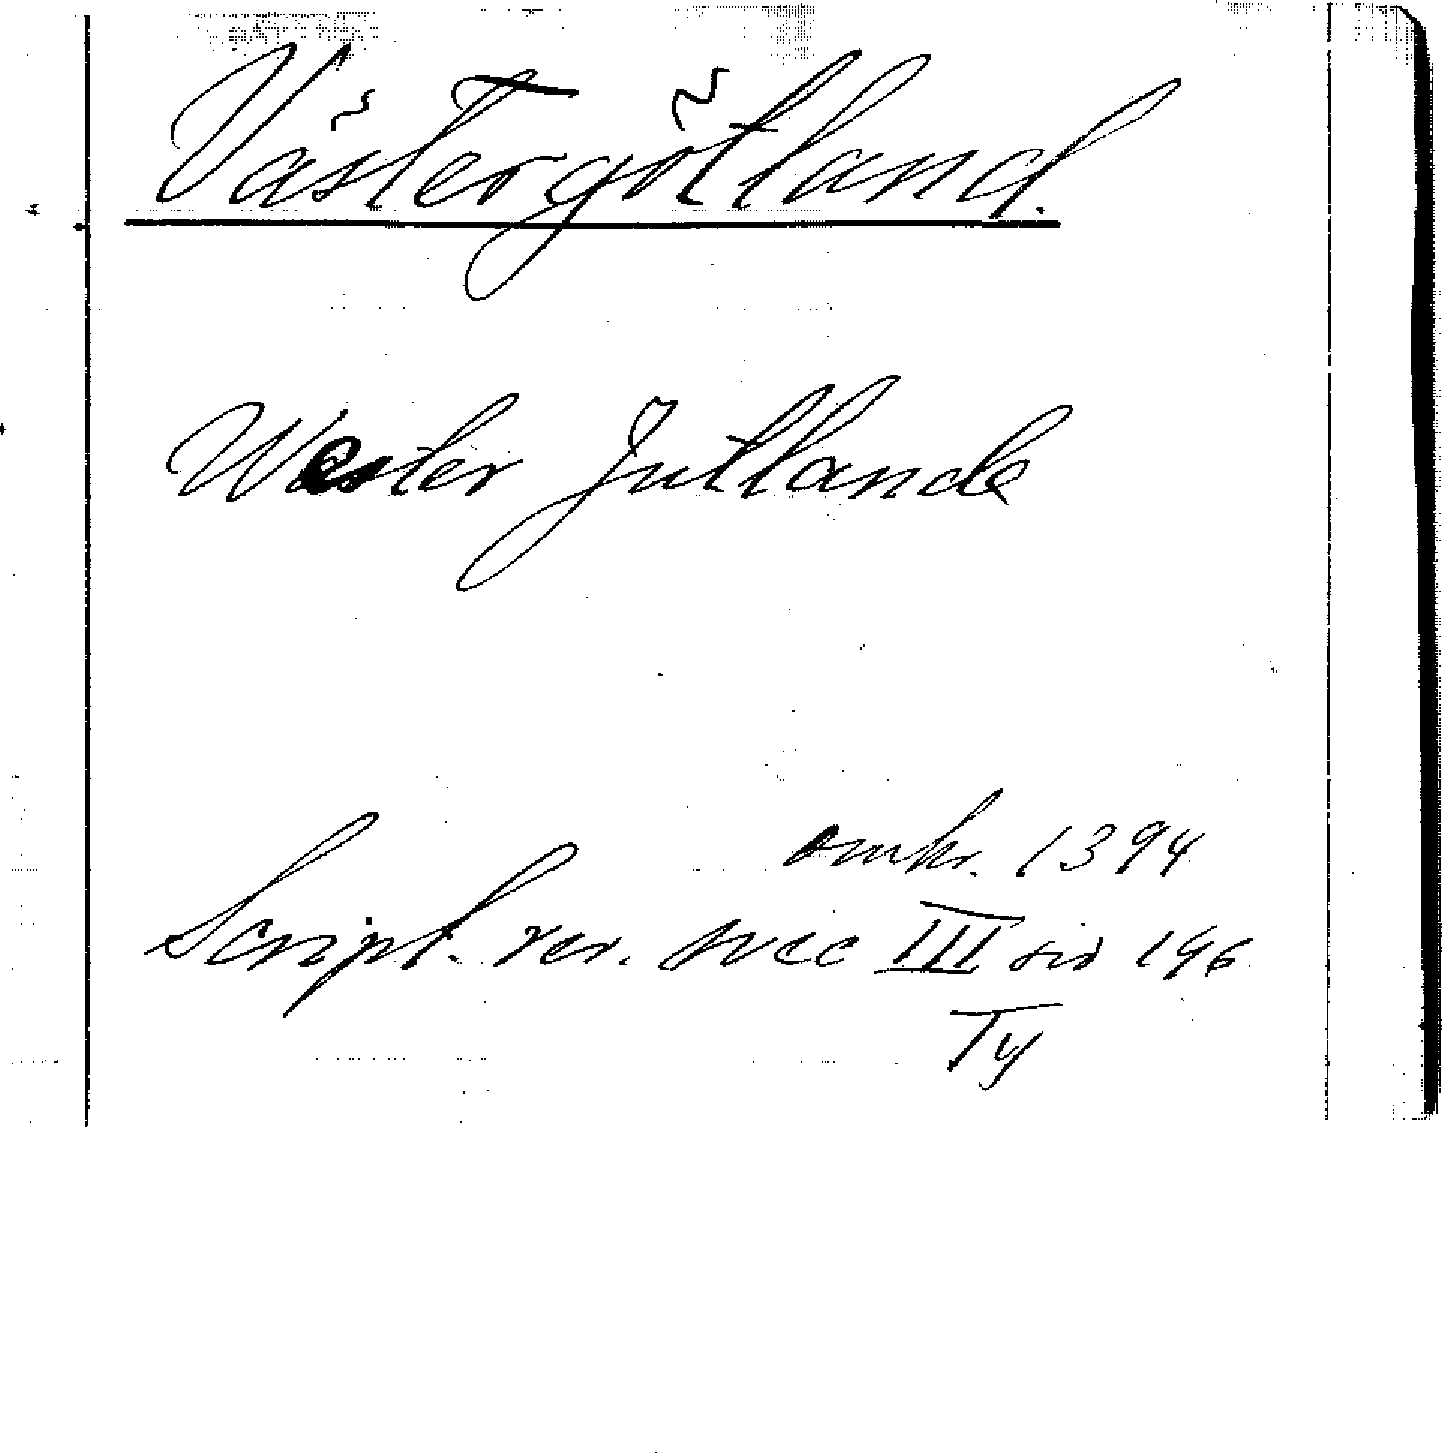 Västergötland.
Wester Jutlande
omkr. 1394
Script. rer. svec III sid 196
Ty